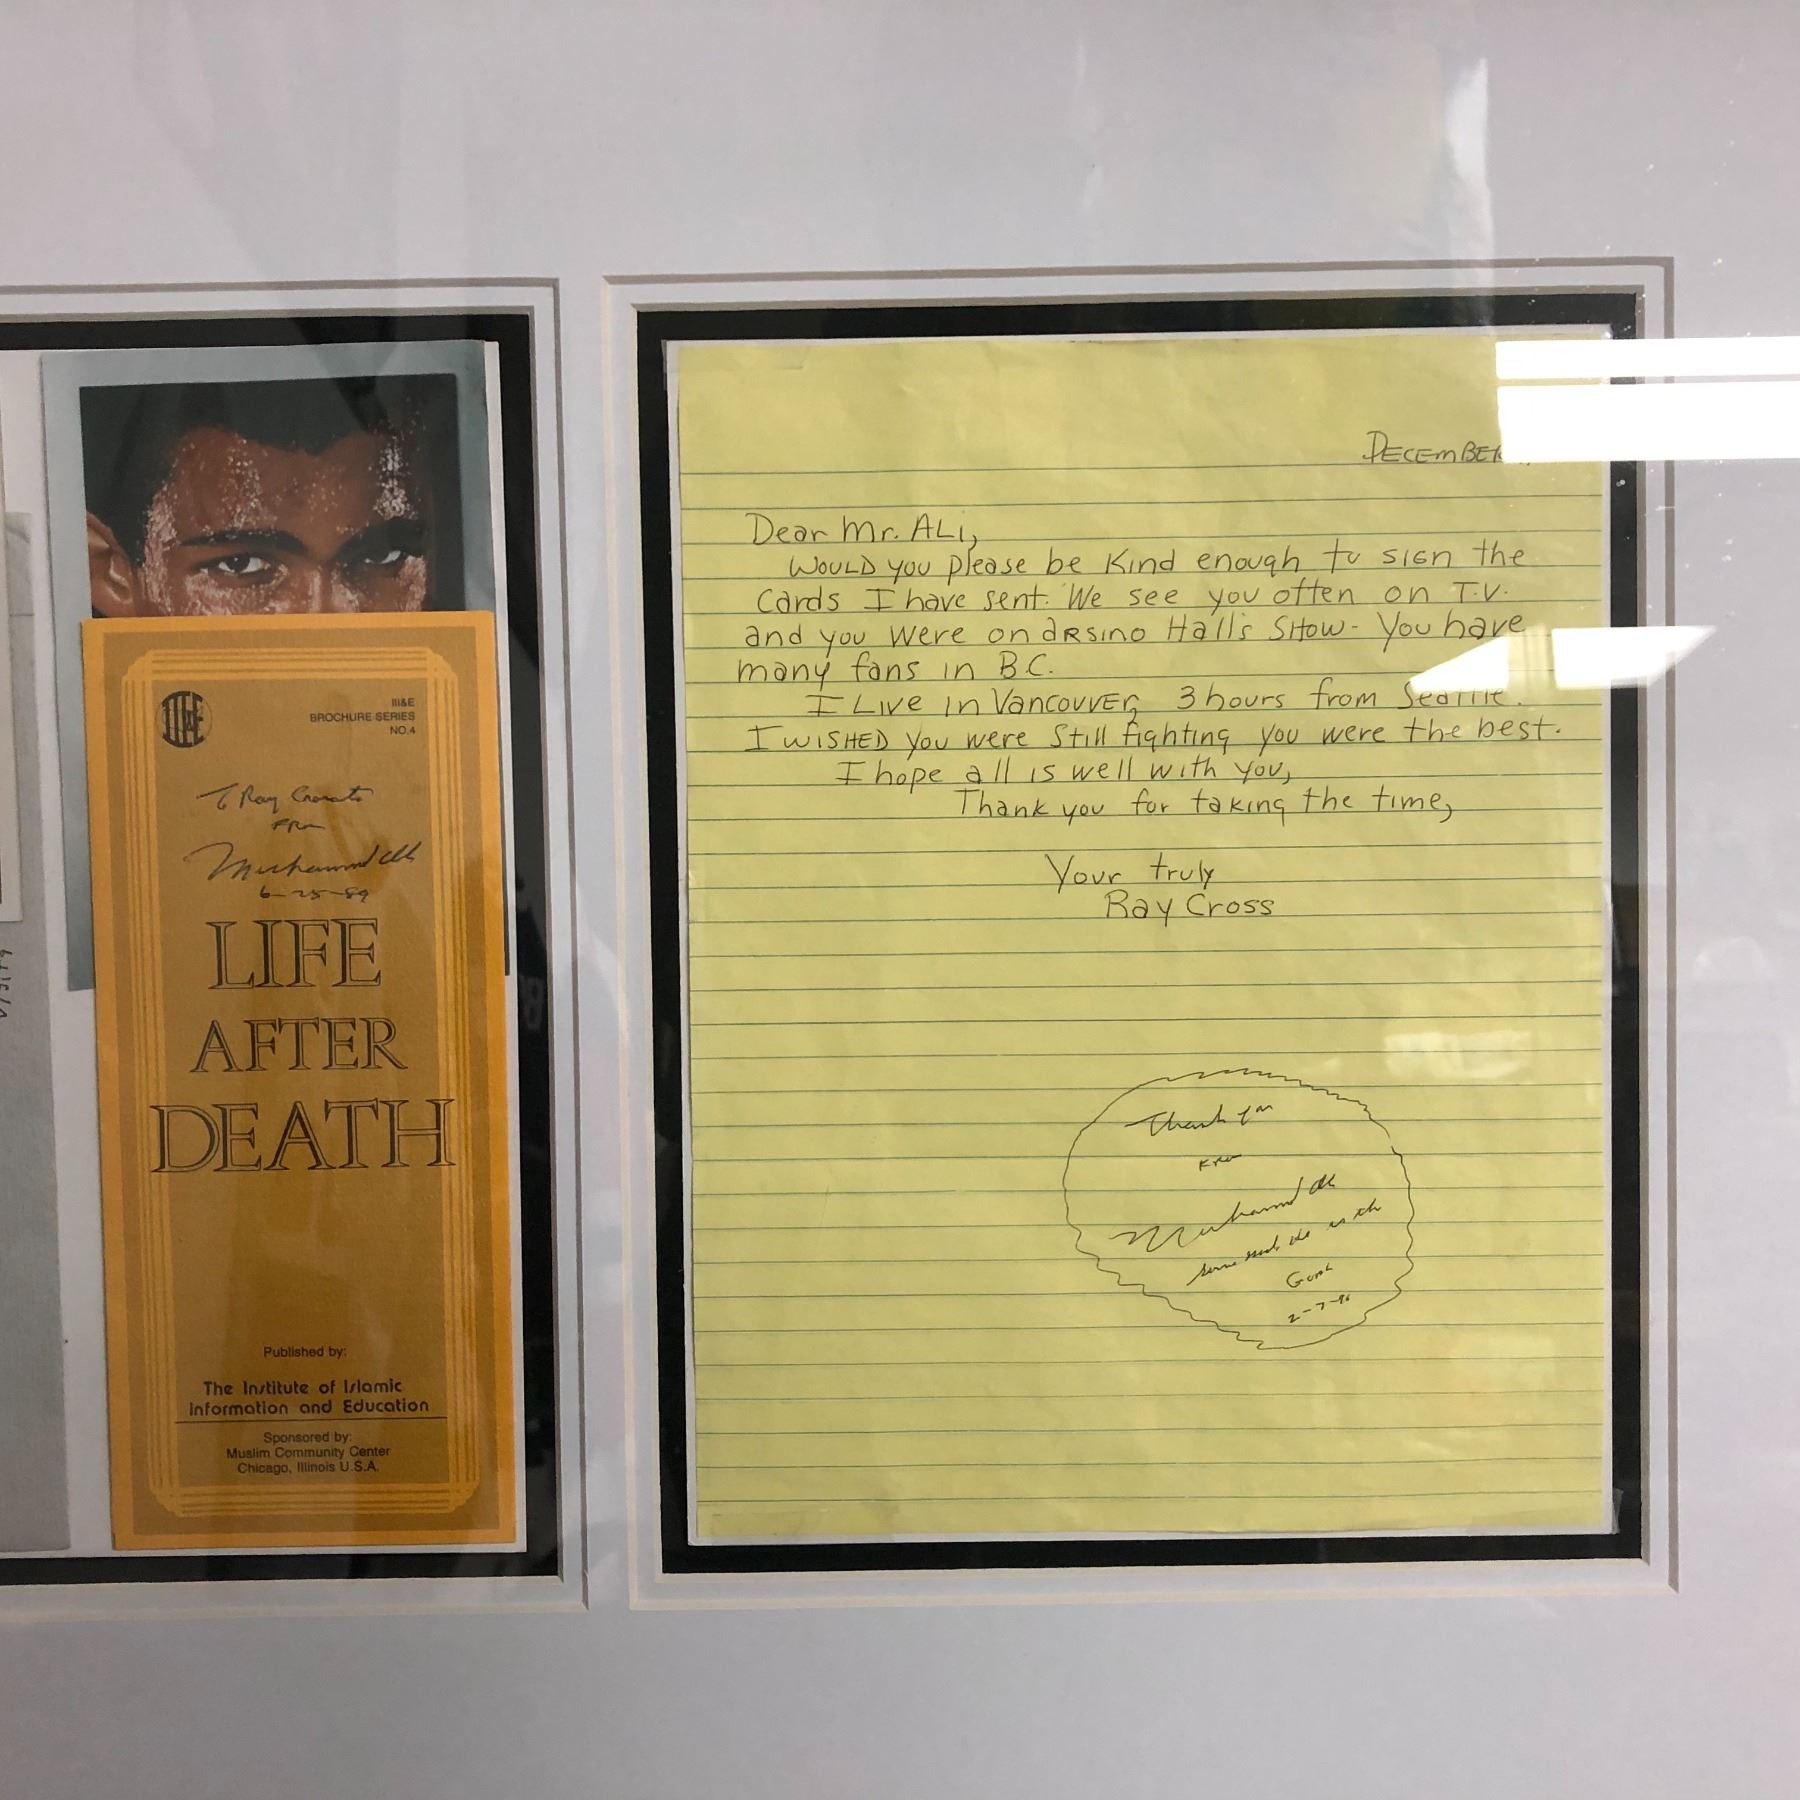 III&E
BROCHURE SERIES
NO.4
To Ray
From
Muhammad Ali
6-25-89
LIFE
AFTER
DEATH
Published by:
The Institute of Islamic
Information and Education
Sponsored by:
Muslim Community Center
Chicago, Illinois U.S.A.
DECEMBER
Dear Mr. ALi,
WOULD you please be Kind enough to SIGN the
Cards I have sent. We see you often on T.V.
and you Were on ARSino Hall's SHow - You have
many fans in B.C.
I Live in VANCOUVER, 3 hours from Seattle.
I WISHED you were Still fighting you were the best.
I hope all is well with you,
Thank you for taking the time,
Your truly
Ray Cross
Thank you
From
Muhammad Ali
2-7-90